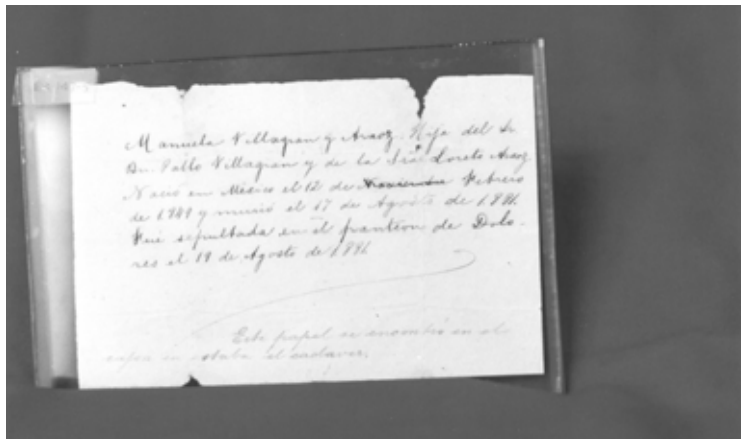 Manuela Villagran y Araoz. Hija del Sr.
Dn. Pablo Villagran y de la Sra. Loreto Araoz
Nació en México el 12 de Febrero
de 1849 y murió el 17 de Agosto de 1891.
Fué sepultada en el panteon de Dolo-
res el 19 de Agosto de 1891
Este papel se encontró en el
cajon en estaba el cadaver.